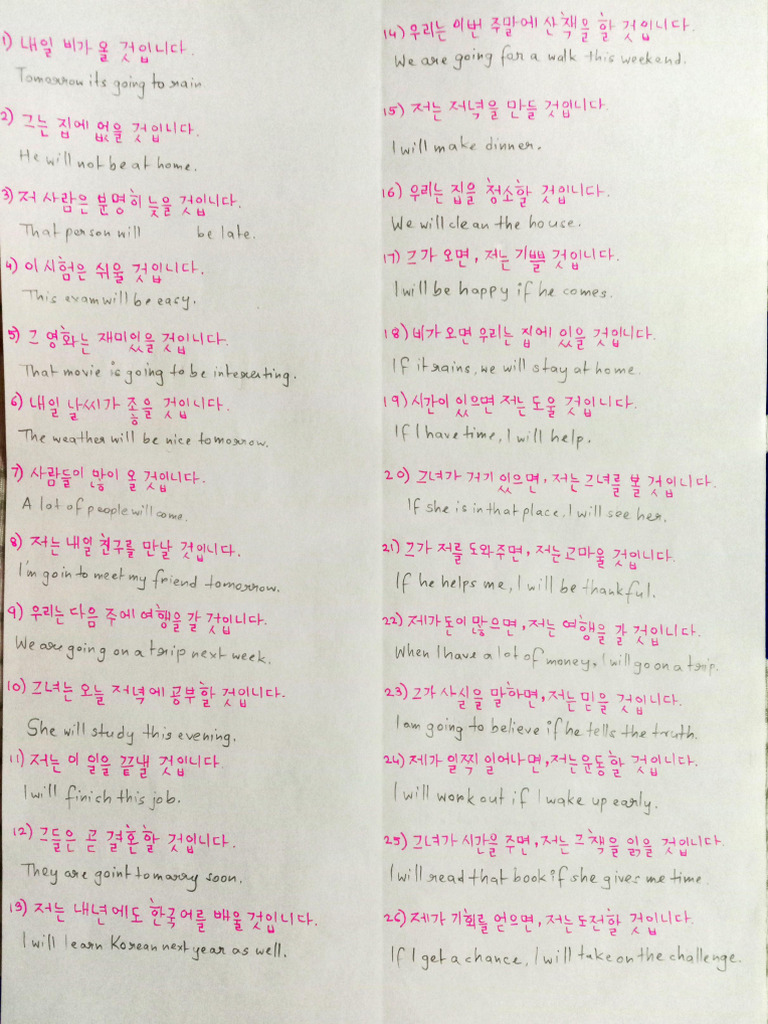 1) 내일 비가 올 것입니다.
Tomorrow its going to rain
2) 그는 집에 없을 것입니다.
He will not be at home.
3) 저 사람은 분명히 늦을 것입니다.
That person will be late.
4) 이 시험은 쉬울 것입니다.
This exam will be easy.
5) 그 영화는 재미있을 것입니다.
That movie is going to be interesting.
6) 내일 날씨가 좋을 것입니다.
The weather will be nice tomorrow.
7) 사람들이 많이 올 것입니다.
A lot of people will come.
8) 저는 내일 친구를 만날 것입니다.
I'm goin to meet my friend tomorrow.
9) 우리는 다음 주에 여행을 갈 것입니다.
We are going on a trip next week.
10) 그녀는 오늘 저녁에 공부할 것입니다.
She will study this evening.
11) 저는 이 일을 끝낼 것입니다.
I will finich this job.
12) 그들은 곧 결혼할 것입니다.
They are goint to marry soon.
13) 저는 내년에도 한국어를 배울것입니다.
I will learn Korean next year as well.
14) 우리는 이번 주말에 산책을 할 것입니다.
We are going for a walk this weekend.
15) 저는 저녁을 만들 것입니다.
I will make dinner.
16) 우리는 집을 청소할 것입니다.
We will clean the house.
17) 그가 오면, 저는 기쁠 것입니다.
I will be happy if he comes.
18) 비가 오면 우리는 집에 있을 것입니다.
If it rains, we will stay at home.
19) 시간이 있으면 저는 도울 것입니다.
If I have time, I will help.
20) 그녀가 거기 있으면, 저는 그녀를 볼 것입니다.
If she is in that place, I will see her.
21) 그가 저를 도와주면, 저는 고마울 것입니다.
If he helps me, I will be thankful.
22) 제가 돈이 많으면, 저는 여행을 갈 것입니다.
When I have a lot of money, I will go on a trip.
23) 그가 사실을 말하면, 저는 믿을 것입니다.
I am going to believe if he tells the truth.
24) 제가 일찍 일어나면, 저는 운동할 것입니다.
I will work out if I wake up early.
25) 그녀가 시간을 주면, 저는 그 책을 읽을 것입니다.
I will read that book if she gives me time.
26) 제가 기회를 얻으면, 저는 도전할 것입니다.
If I get a chance, I will take on the challenge.